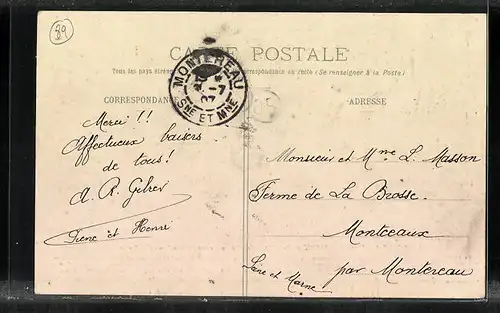 89
CARTE POSTALE
Tous les pays étrangers correspondance au recto (Se renseigner à la Poste)
MONTEREAU
-7
07
SNE ET MNE
CORRESPONDANCE
ADRESSE
Merci !!
Affectueux baisers
de tous!
A. R.
Pierre et Henri
Monsieur et Mme L. Masson
Ferme de La Brosse.
Montceaux
par Montereau
Seine et Marne